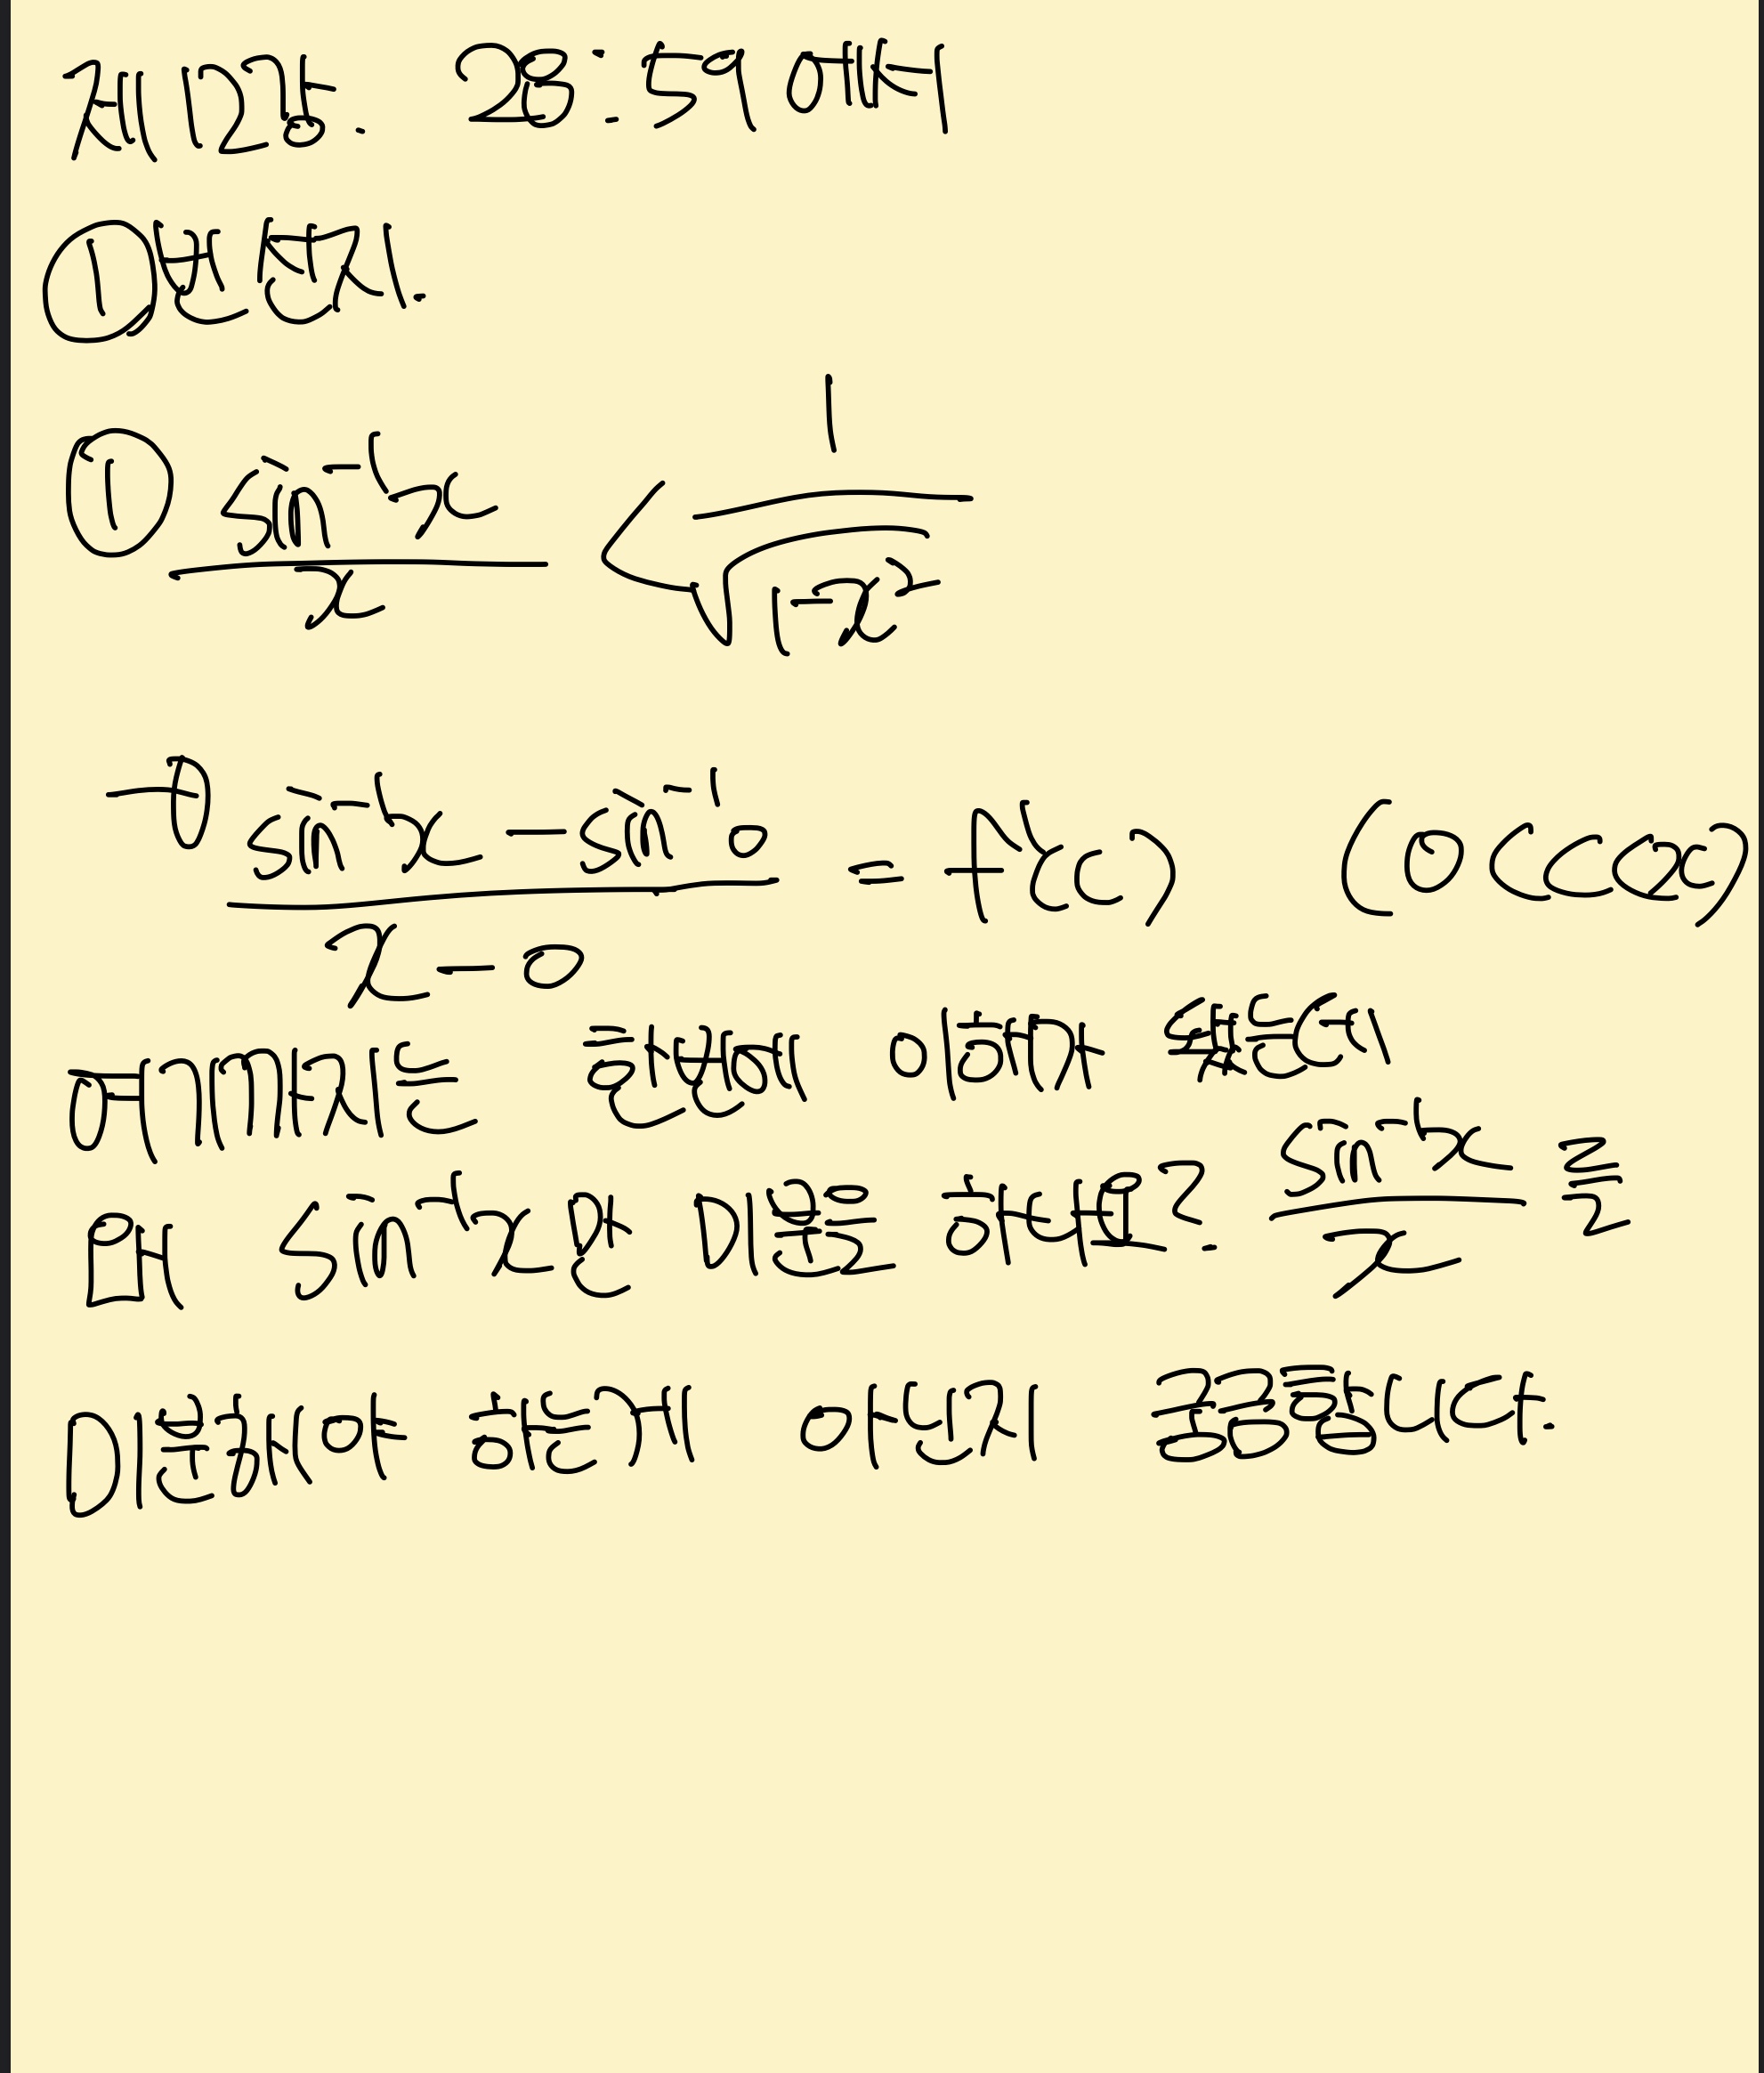 제12강. 28:59 여부터
①번 보기.
① sin⁻¹x / x < 1 / √(1-x²)
→ sin⁻¹x - sin⁻¹0 / x - 0 = f'(c) (0<c<x)
여기까지는 한번에 이해 했는데
왜 sin⁻¹x만 미분을 하나요? sin⁻¹x / x 를
미분해야 하는게 아닌지 궁금합니다.